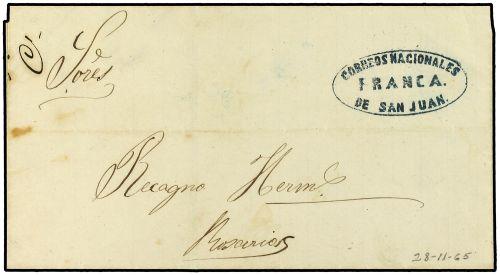 Sores
CORREOS NACIONALES
FRANCA.
DE SAN JUAN.
Recagno Herms
Rosario
28-11-65